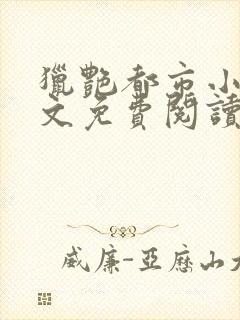 獵艷都市小
文免費閱讀
威廉-亞歷山大